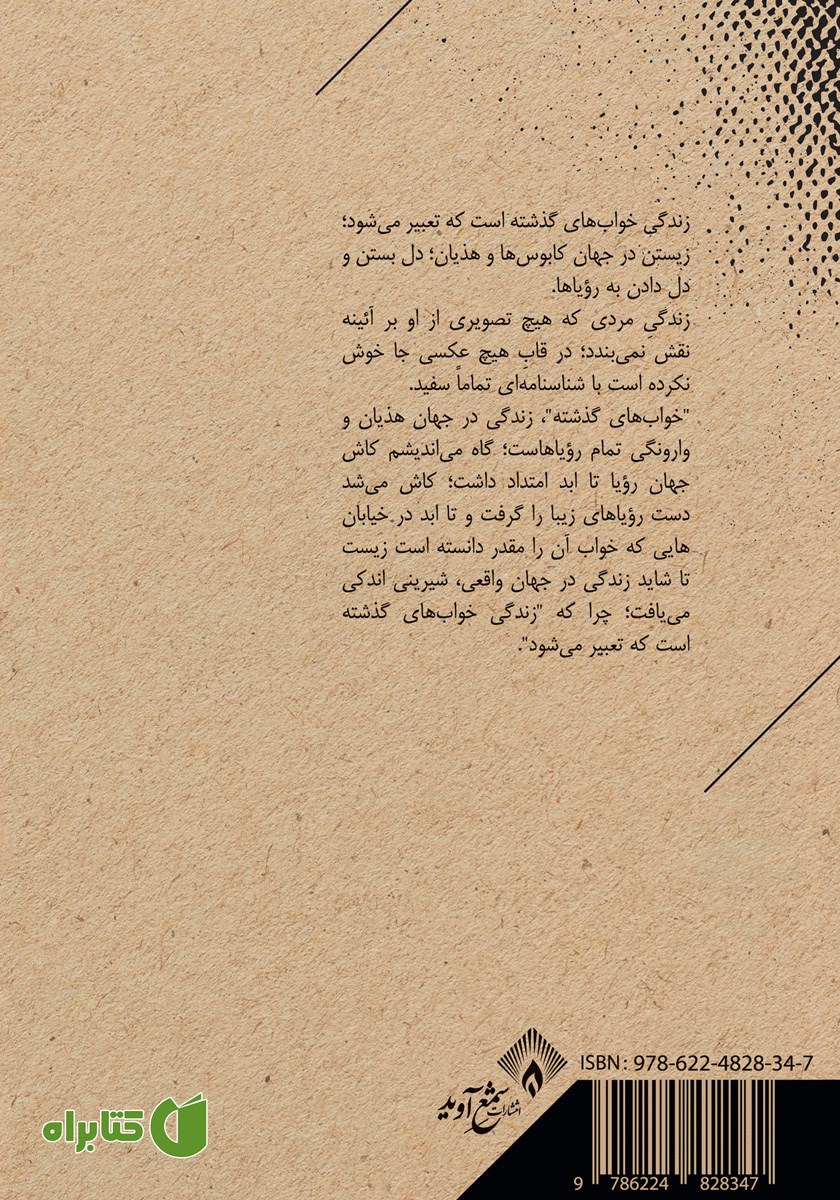 زندگی خواب‌های گذشته است که تعبیر می‌شود؛
زیستن در جهان کابوس‌ها و هذیان؛ دل بستن و
دل دادن به رؤیاها.
زندگیِ مردی که هیچ تصویری از او بر آئینه
نقش نمی‌بندد؛ در قابِ هیچ عکسی جا خوش
نکرده است با شناسنامه‌ای تماماً سفید.
"خواب‌های گذشته"، زندگی در جهان هذیان و
وارونگی تمام رؤیاهاست؛ گاه می‌اندیشم کاش
جهان رؤیا تا ابد امتداد داشت؛ کاش می‌شد
دست رؤیاهای زیبا را گرفت و تا ابد در خیابان
هایی که خواب آن را مقدر دانسته است زیست
تا شاید زندگی در جهان واقعی، شیرینی اندکی
می‌یافت؛ چرا که "زندگی خواب‌های گذشته
است که تعبیر می‌شود".
ISBN: 978-622-4828-34-7
انتشارات شمع آوید
کتابراه
9 786224 828347